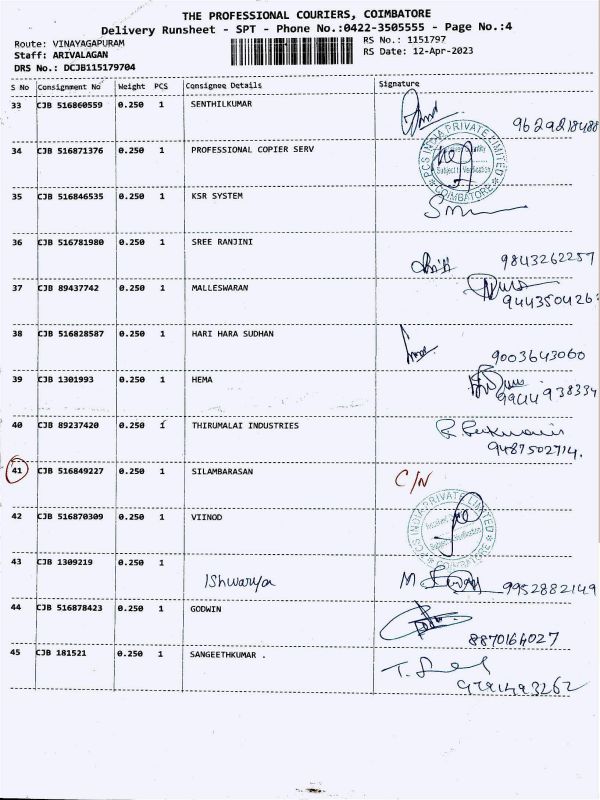 THE PROFESSIONAL COURIERS, COIMBATORE
Delivery Runsheet - SPT - Phone No.:0422-3505555 - Page No.:4
Route: VINAYAGAPURAM RS No.: 1151797
Staff: ARIVALAGAN RS Date: 12-Apr-2023
DRS No.: DCJB115179704
S No Consignment No Weight PCS Consignee Details Signature
33 CJB 516860559 0.250 1 SENTHILKUMAR
9629818488
34 CJB 516871376 0.250 1 PROFESSIONAL COPIER SERV
PCS INDIA PRIVATE LIMITED
Subject to Verification
COIMBATORE
35 CJB 516846535 0.250 1 KSR SYSTEM
36 CJB 516781980 0.250 1 SREE RANJINI
9843262257
37 CJB 89437742 0.250 1 MALLESWARAN
944350426
38 CJB 516828587 0.250 1 HARI HARA SUDHAN
9003643060
39 CJB 1301993 0.250 1 HEMA
9944938334
40 CJB 89237420 0.250 1 THIRUMALAI INDUSTRIES
9487502714.
41 CJB 516849227 0.250 1 SILAMBARASAN C/N
PCS INDIA PRIVATE LIMITED
42 CJB 516870309 0.250 1 VIINOD
Subject to Verification
COIMBATORE
43 CJB 1309219 0.250 1
Ishwarya 9952882149
44 CJB 516878423 0.250 1 GODWIN
8870164027
45 CJB 181521 0.250 1 SANGEETHKUMAR .
9791493262